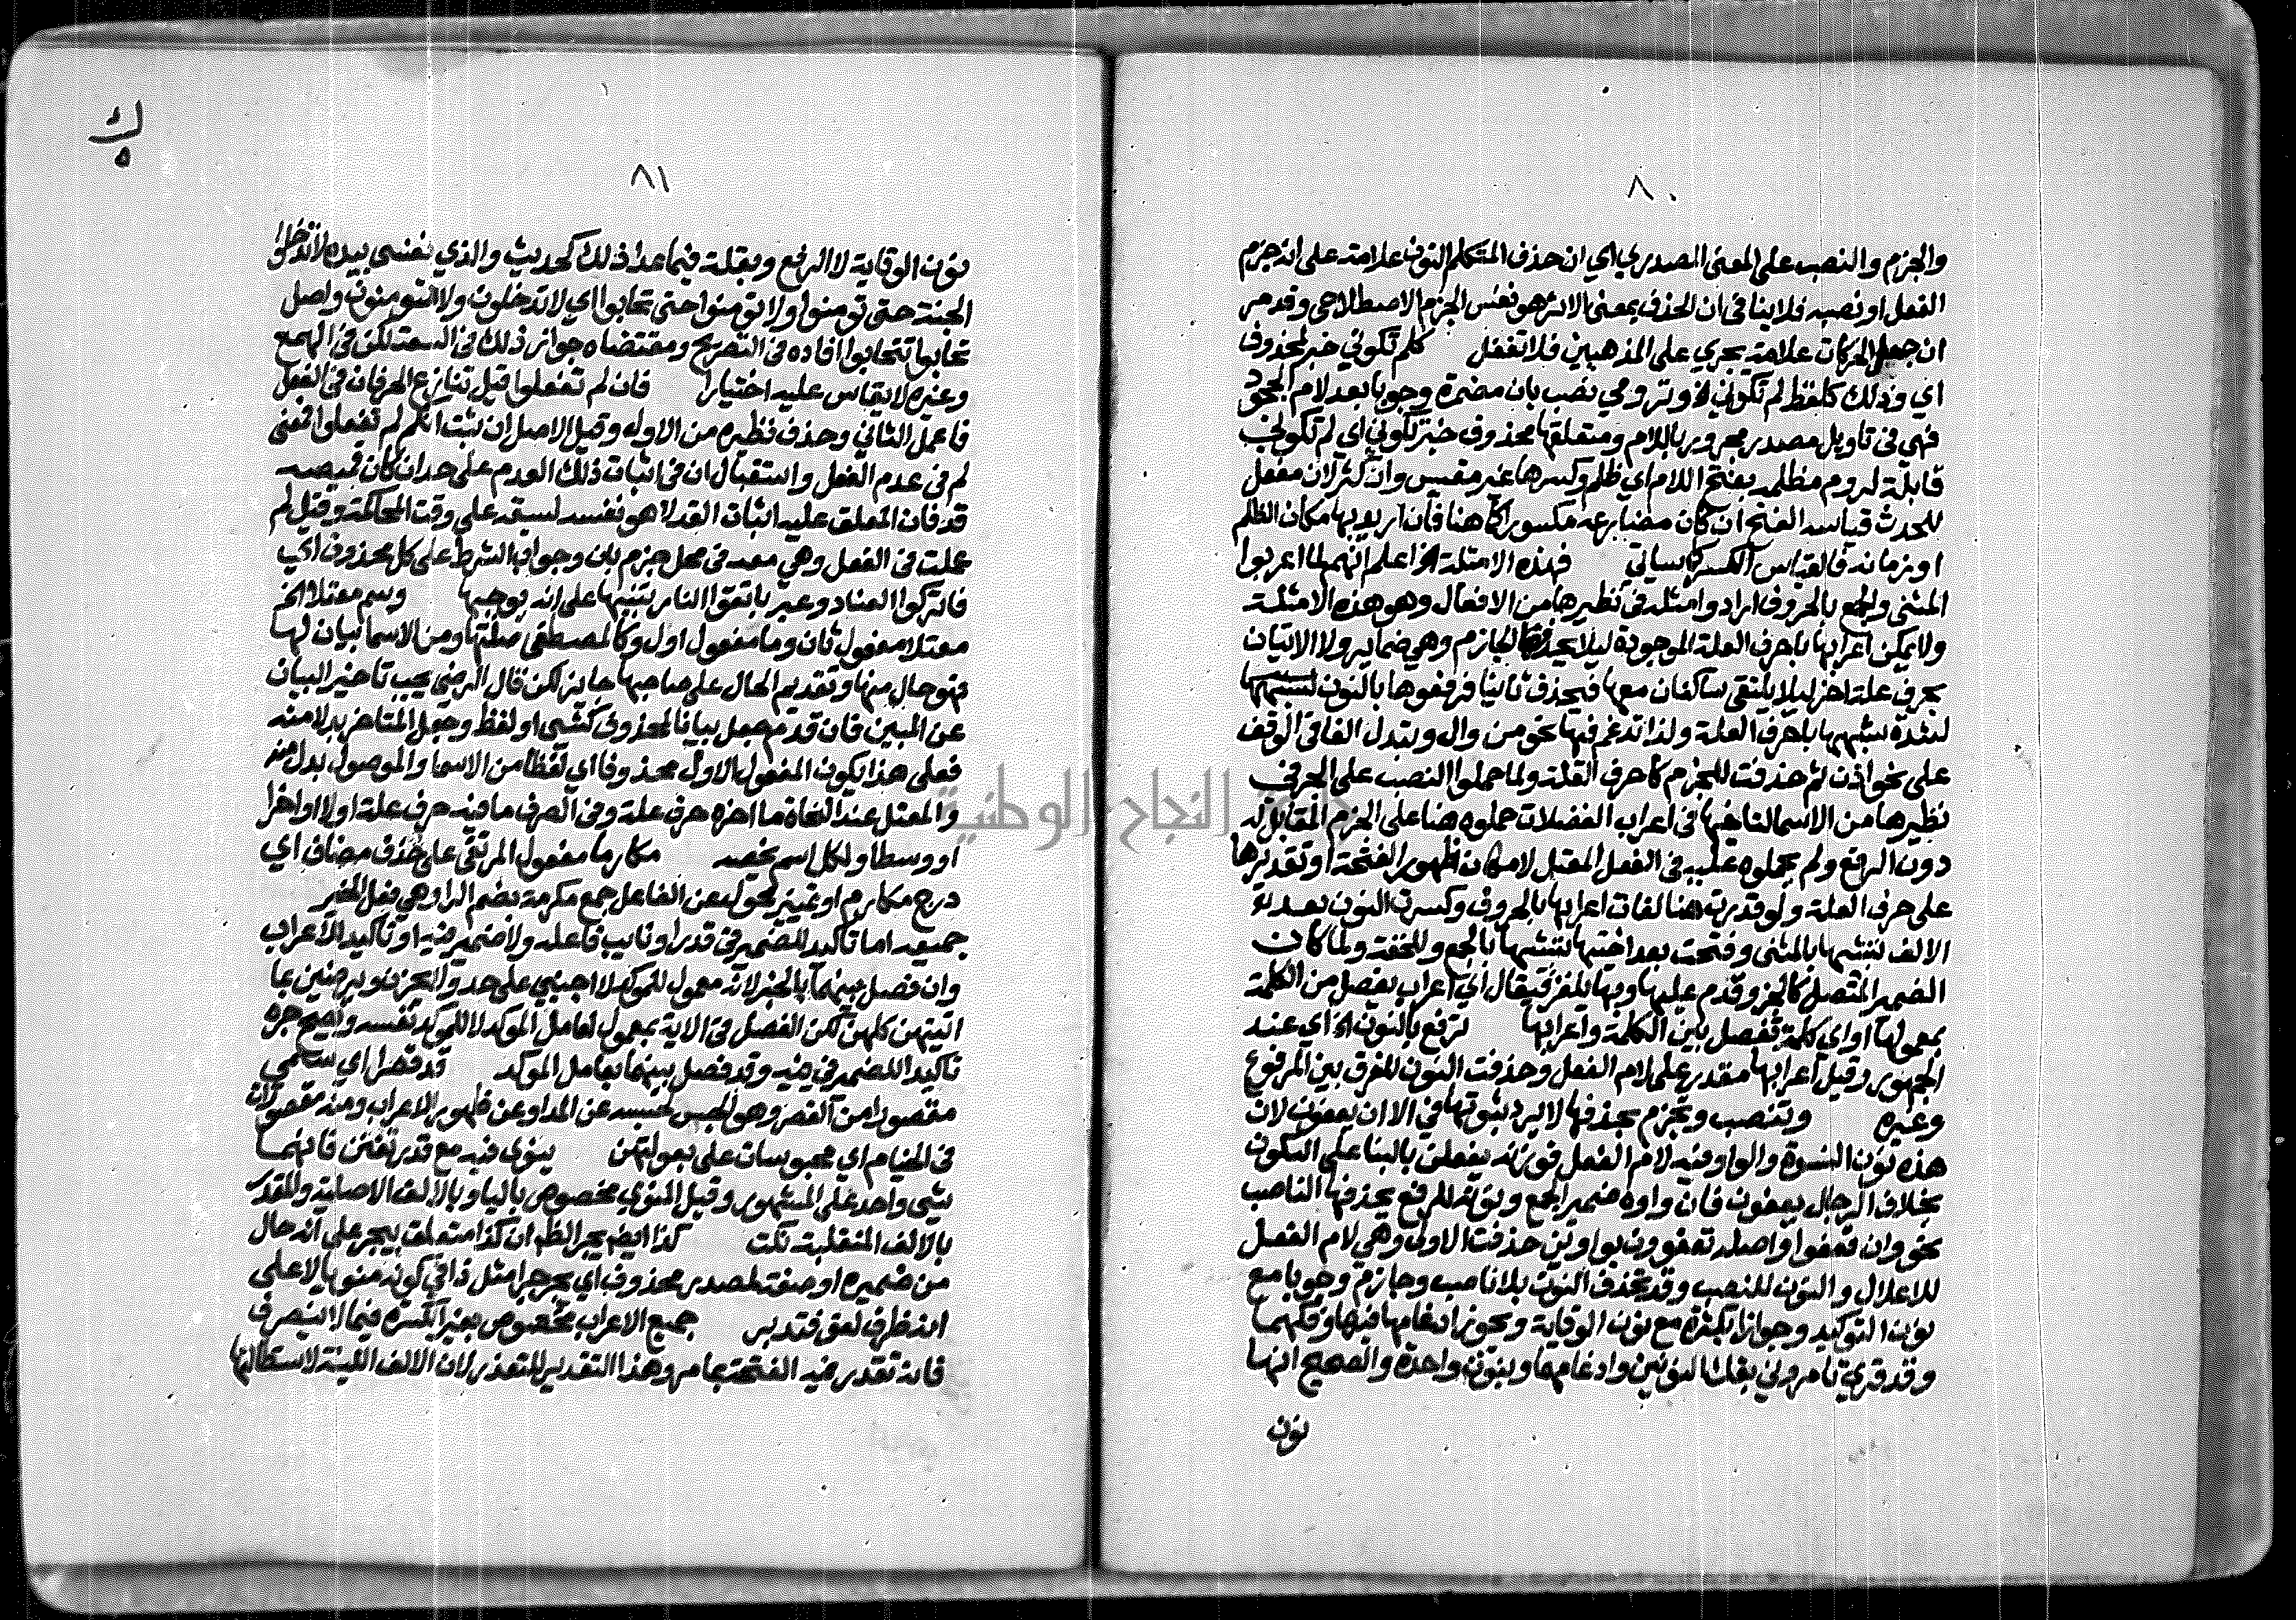 ٨٠
والجزم والنصب على المعنى المصدري اي ان حذف المتكلم النون علامة على انه جزم
الفعل او نصبه فلا ينافي ان الحذف بمعنى الاثر هو نفس الجزم الاصطلاحي وقد مر
ان جعل الحركات علامة يجري على المذهبين فلا تغفل كلم تكوني خبر لمحذوف
اي وذلك كلفظ لم تكوني اه وترومي نصب بان مضمرة وجوبا بعد لام الجحود
فهي في تاويل مصدر مجرور باللام ومتعلقها محذوف خبر تكوني اي لم تكوني
قابلة لروم مظلمه بفتح اللام اي ظلم وكسرها غير مقيس وان كثر لان مفعل
للحدث قياسه الفتح ان كان مضارعه مكسورا كما هنا فان اريد بها مكان الظلم
او زمانه فالقياس الكسر كما سياتي فهذه الامثلة اه اعلم انهم لما اعربوا
المثنى والجمع بالحروف ارادوا مثله في نظيرها من الافعال وهو هذه الامثلة
ولا يمكن اعرابها باحرف العلة الموجودة ليلا يحذفها الجازم وهي ضماير ولا الاتيان
بحرف علة اخر ليلا يلتقي ساكنان معها فيحذف ثانيا فرفعوها بالنون
لشدة شبهها باحرف العلة ولذا تدغم فيها نحو من وال وتبدل الفا في الوقف
على نحو اذن ثم حذفت للجزم كاحرف العلة ولما حملوا النصب على الجر في
نظيرها من الاسما لتاخيها في اعراب الفضلات حملوه هنا على الجزم المقابل له
دون الرفع ولم يحملوه عليه في الفعل المعتل لامكان ظهور الفتحة او تقديرها
على حرف العلة ولو قدرت هنا لفات اعرابها بالحروف وكسرت النون بعد
الالف تشبيها بالمثنى وفتحت بعد اختيها تشبيها بالجمع وللخفة ولما كان
الضمير المتصل كالجزء وقدم عليها وبها يلغز فيقال اي اعراب يفصل من الكلمة
بمعمولها او اي كلمة تفصل بين الكلمة واعرابها ترفع بالنون اه اي عند
الجمهور وقيل اعرابها مقدر على لام الفعل وحذفت النون للفرق بين المرفوع
وغيره وتنصب وتجزم بحذفها لا يرد ثبوتها في الا ان يعفون لان
هذه نون النسوة والواو فيه لام الفعل فوزنه يفعلن بالبنا على السكون
بخلاف الرجال يعفون فان واوه ضمير الجمع ونونه للرفع يحذفها الناصب
نحو وان تعفوا واصله تعفوون بواوين حذفت الاولى وهي لام الفعل
للاعلال والنون للنصب وقد تحذف النون بلا ناصب وجازم وجوبا مع
نون التوكيد وجوازا بكثرة مع نون الوقاية ويجوز ادغامها فيها وفكهما
وقد قري تامروني بفك النونين وادغامهما وبنون واحدة والصحيح انها
نون
٨١
نون الوقاية لا الرفع وبقلة فيما عدا ذلك كحديث والذي نفسي بيده لا تدخلوا
الجنة حتى تومنوا ولا تومنوا حتى تحابوا اي لا تدخلون ولا تومنون واصل
تحابوا تتحابوا افاده في التصريح ومقتضاه جواز ذلك في السعة لكن في الهمع
وغيره لا يقاس عليه اختيارا فان لم تفعلوا قيل تنازع الحرفان في الفعل
فاعمل الثاني وحذف نظيره من الاول وقيل الاصل ان ثبت انكم لم تفعلوا فمعنى
لم في عدم الفعل واستقبال ان في اثبات ذلك العدم على حد ان كان قميصه
قد فان المعلق عليه اثبات القد لا هو نفسه لسبقه على وقت المحاكمة وقيل لم
عملت في الفعل وهي معه في محل جزم بان وجواب الشرط على كل محذوف اي
فاتركوا العناد وعبر باتقوا النار تنبيها على انه يوجبها وسم معتلا الخ
معتلا مفعول ثان وما مفعول اول وكالمصطفى صلتها ومن الاسما بيان لها
فهو حال منها وتقديم الحال على صاحبها جايز لكن قال الرضي يجب تاخير البيان
عن المبين فان قدم جعل بيانا لمحذوف كشي او لفظ وجعل المتاخر بدلا منه
فعلى هذا يكون المفعول الاول محذوفا اي لفظا من الاسما والموصول بدل منه
والمعتل عند النحاة ما اخره حرف علة وفي الصرف ما فيه حرف علة اولا او اخرا
او وسطا ولكل اسم يخصه مكارما مفعول المرتقي على حذف مضاف اي
درج مكارم او تمييز محول عن الفاعل جمع مكرمة بضم الرا وهي فعل الخير
جميعه اما تاكيد للضمير في قدرا ونايب فاعله ولا ضمير فيه او تاكيد للاعراب
وان فصل بينهما بالخبر لانه معمول للموكد لا اجنبي على حد ولا يحزن ويرضين بما
اتيتهن كلهن لكن الفصل في الاية بمعمول لعامل الموكد لا للموكد نفسه ويصح جره
تاكيدا للضمير في فيه وقد فصل بينهما بعامل الموكد قد قصرا اي سمي
مقصورا من القصر وهو الحبس لحبسه عن المد او عن ظهور الاعراب ومنه مقصورات
في الخيام اي محبوسات على بعولتهن ينوى فيه مع قدر تفنن فانهما
شي واحد على المشهور وقيل المنوي مخصوص باليا وبالالف الاصلية والمقدر
بالالف المنقلبة نكت كذا ايضا يجر الظ ان كذا متعلق بيجر على انه حال
من ضميره او صفة لمصدر محذوف اي يجر جرا مثل ذا في كونه منويا لا على
انه ظرف لغو فتدبر جميع الاعراب مخصوص بغير الكسرة فيما لا ينصرف
فانه تقدر فيه الفتحة بما مر وهذا التقدير للتعذر لان الالف اللينة لاستطالتها
جامعة النجاح الوطنية